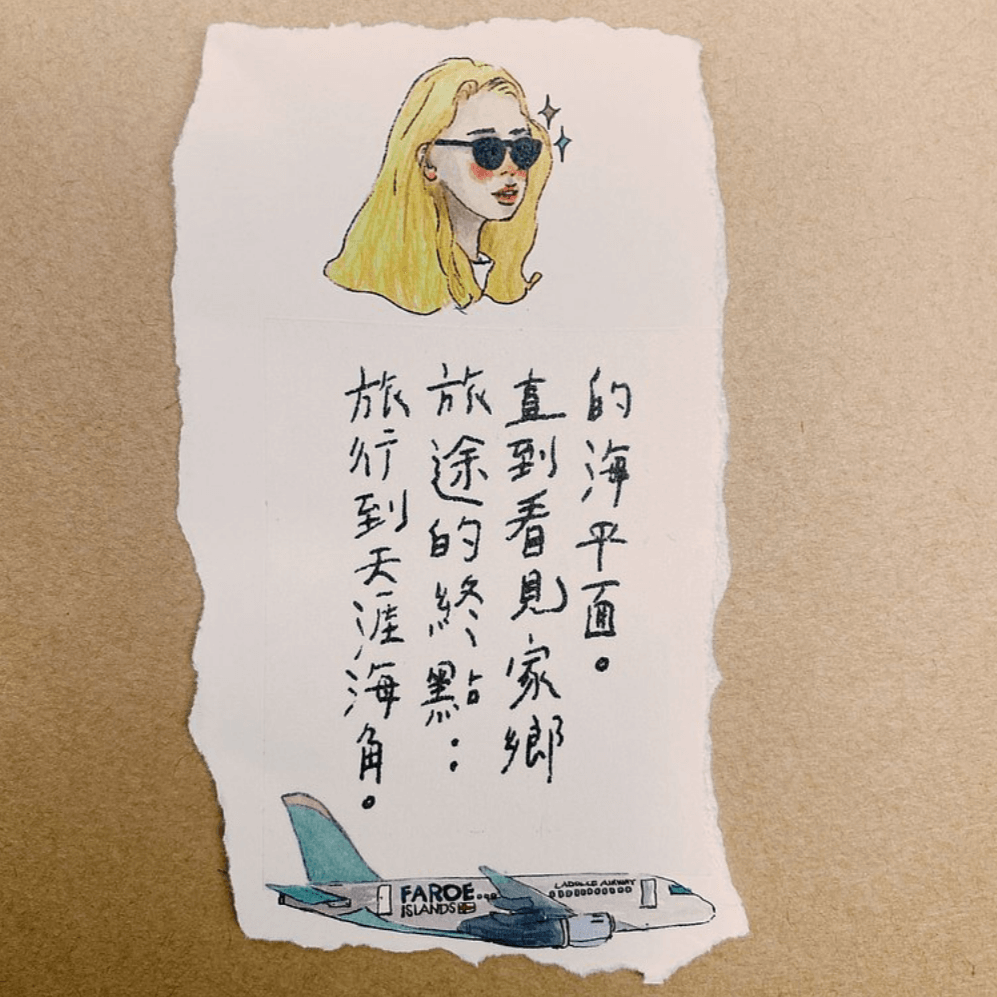 旅行到天涯海角。
旅途的終點：
直到看見家鄉
的海平面。
FAROE
ISLANDS
AIRWAY